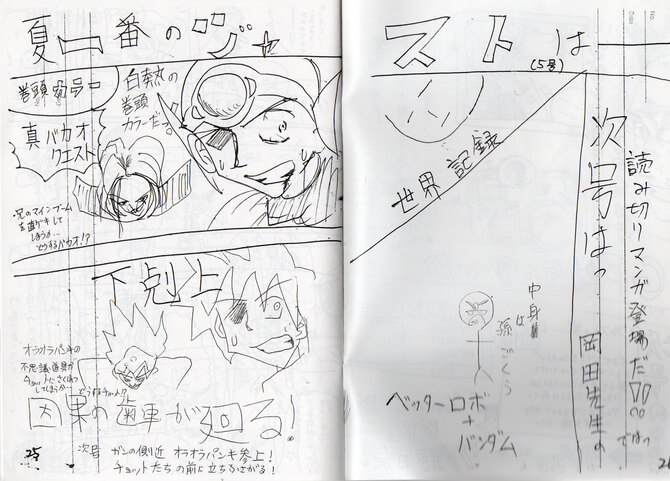 夏一番のジャ
スト は
(5号)
巻頭カラー
白熱丸の
巻頭
カラーだっ
真バカオ
クエスト
兄のマインブーム
を直ゲキして
しまうか…
どうするバカオ!?
世界記録
次号はっ
読み切りマンガ登場だ!!
岡田先生の
ではっ
下剋上
オラオラパンキの
不思議道具が
チョットにさくれつ
してしまうか…
どうするチョット!?
中身は
孫ごくう
ベッターロボ
+
バンダム
因果の歯車が廻る!
次号 ガンの側近 オラオラパンキ参上!
チョットたちの前に立ちふさがる!
25